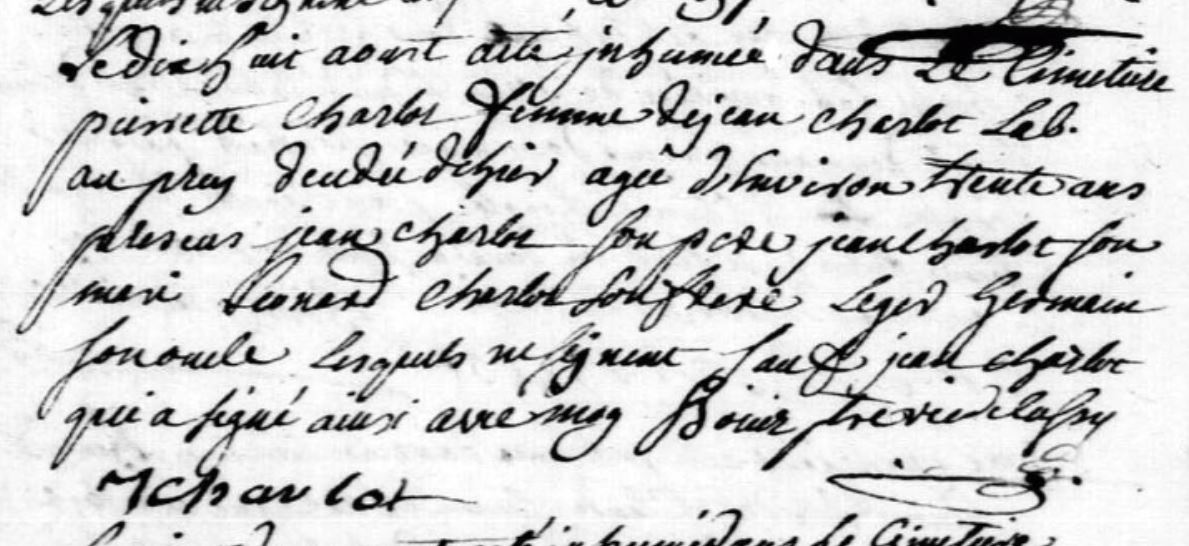 Lesquels ne signent
Le dix huit aoust a eté jnhumée dans Le Cimetiére
pierrette Charlot femme de jean Charlot Lab.
au prey decedée d'hier agée d'Environ trente ans
presens jean Charlot son pere jean Charlot son
mari Leonard Charlot son frere Leger Germain
son oncle Lesquels ne signent sauf jean Charlot
qui a signé ainsi avec moy
J Charlot
inhumé dans Le Cimetiere